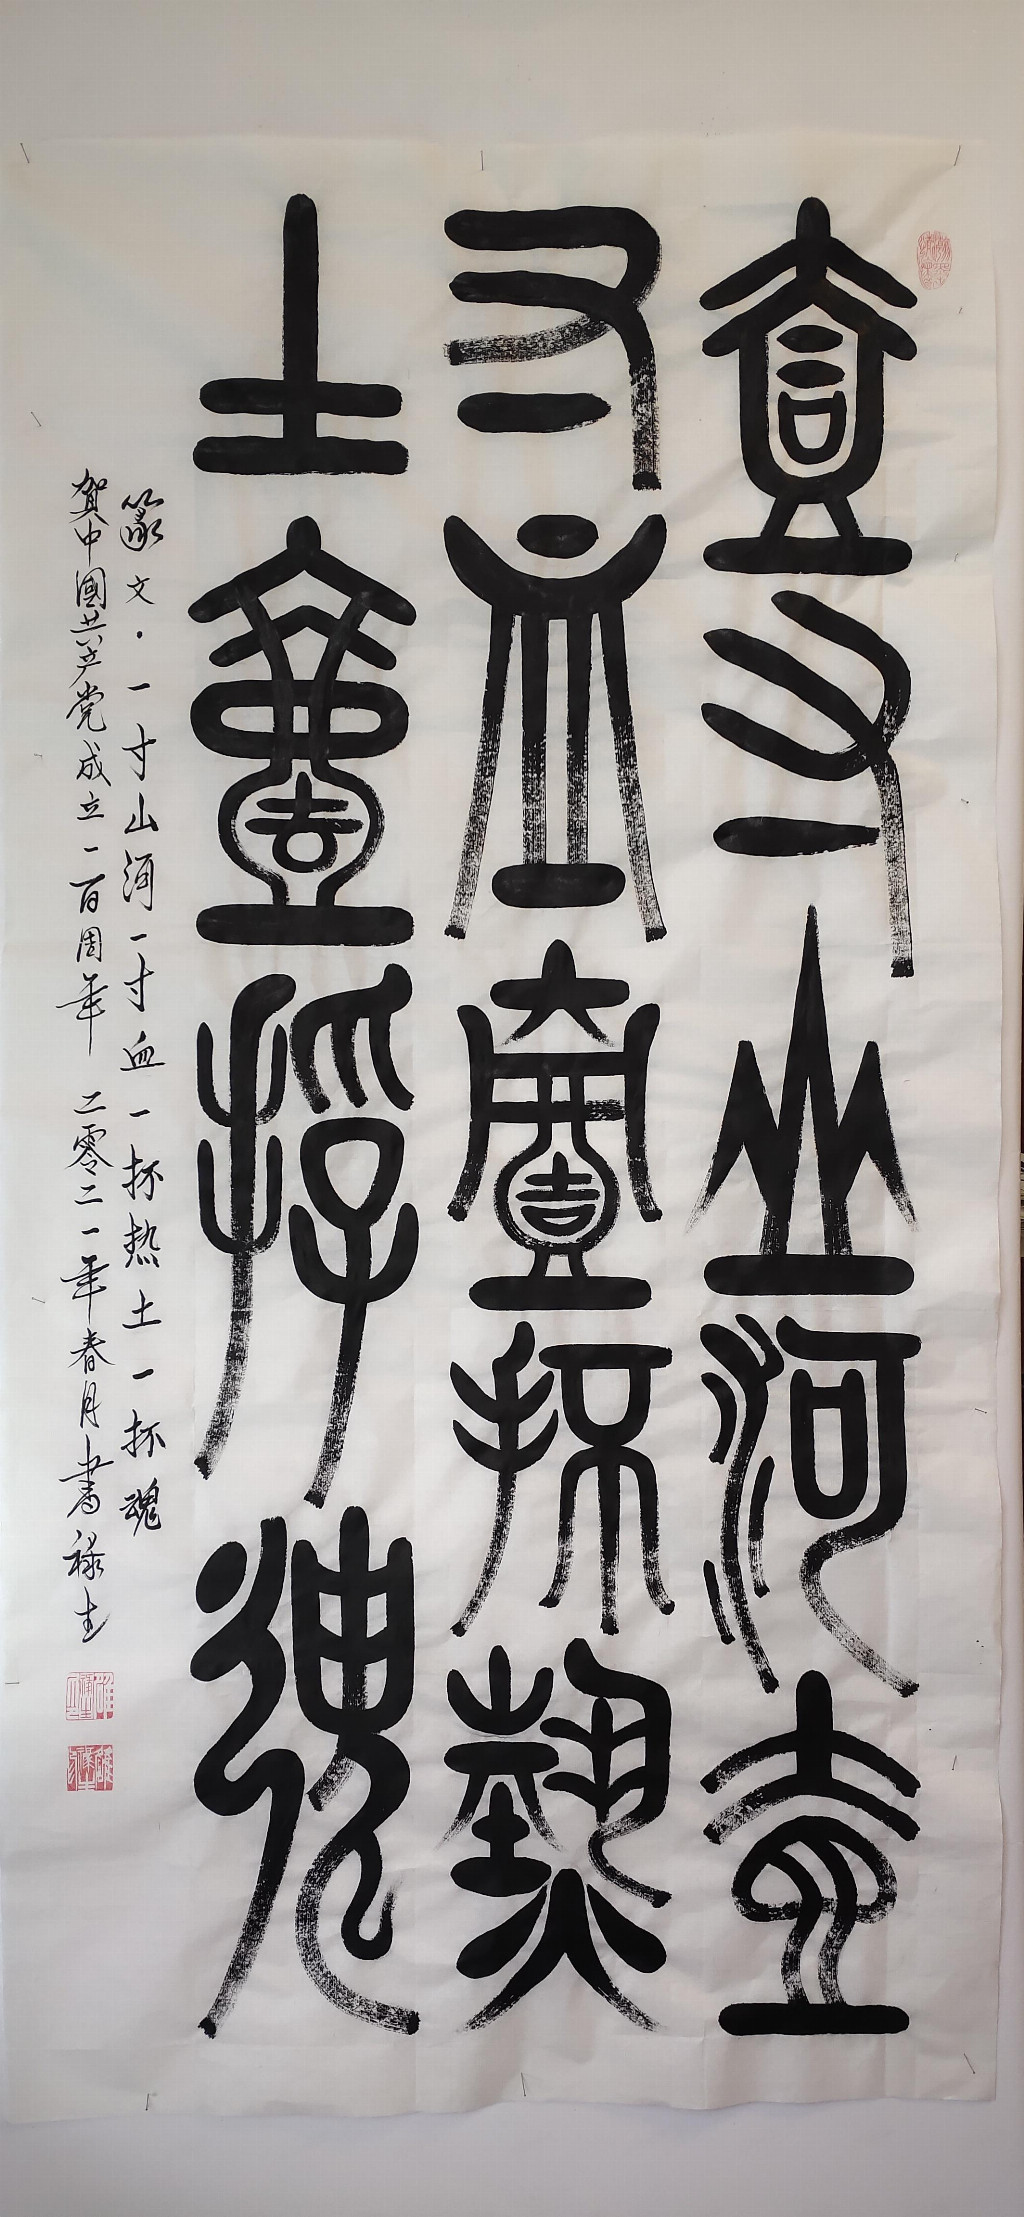 壹寸山河壹
寸血壹抔熱
土壹抔魂
篆文·一寸山河一寸血一抔热土一抔魂
賀中國共产党成立一百周年 二零二一年春月書禄生